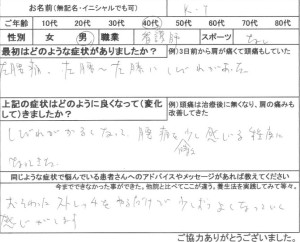 お名前(無記名・イニシャルでも可) K.T
ご年齢 10代 20代 30代 40代 50代 60代 70代
性別 女 男 職業 看護師 スポーツ なし
最初はどのような症状がありましたか? 例)3日前から肩が痛くて頭痛もしていた
左腰痛、左腰~左膝にしびれがあった。
上記の症状はどのように良くなって(変化して)きましたか? 例)頭痛は治療後に無くなり、肩の痛みも改善してきた
しびれがかるくなって、腰痛も少し感じる程度に
なってきた。
同じような症状で悩んでいる患者さんへのアドバイスやメッセージがあれば教えてください
今までできなかった事ができた。他院と比べてここが違う。養生法を実践してみて等々。
ストレッチをやるだけで少しずつよくなっていく
感じがします
ご協力ありがとうございました。